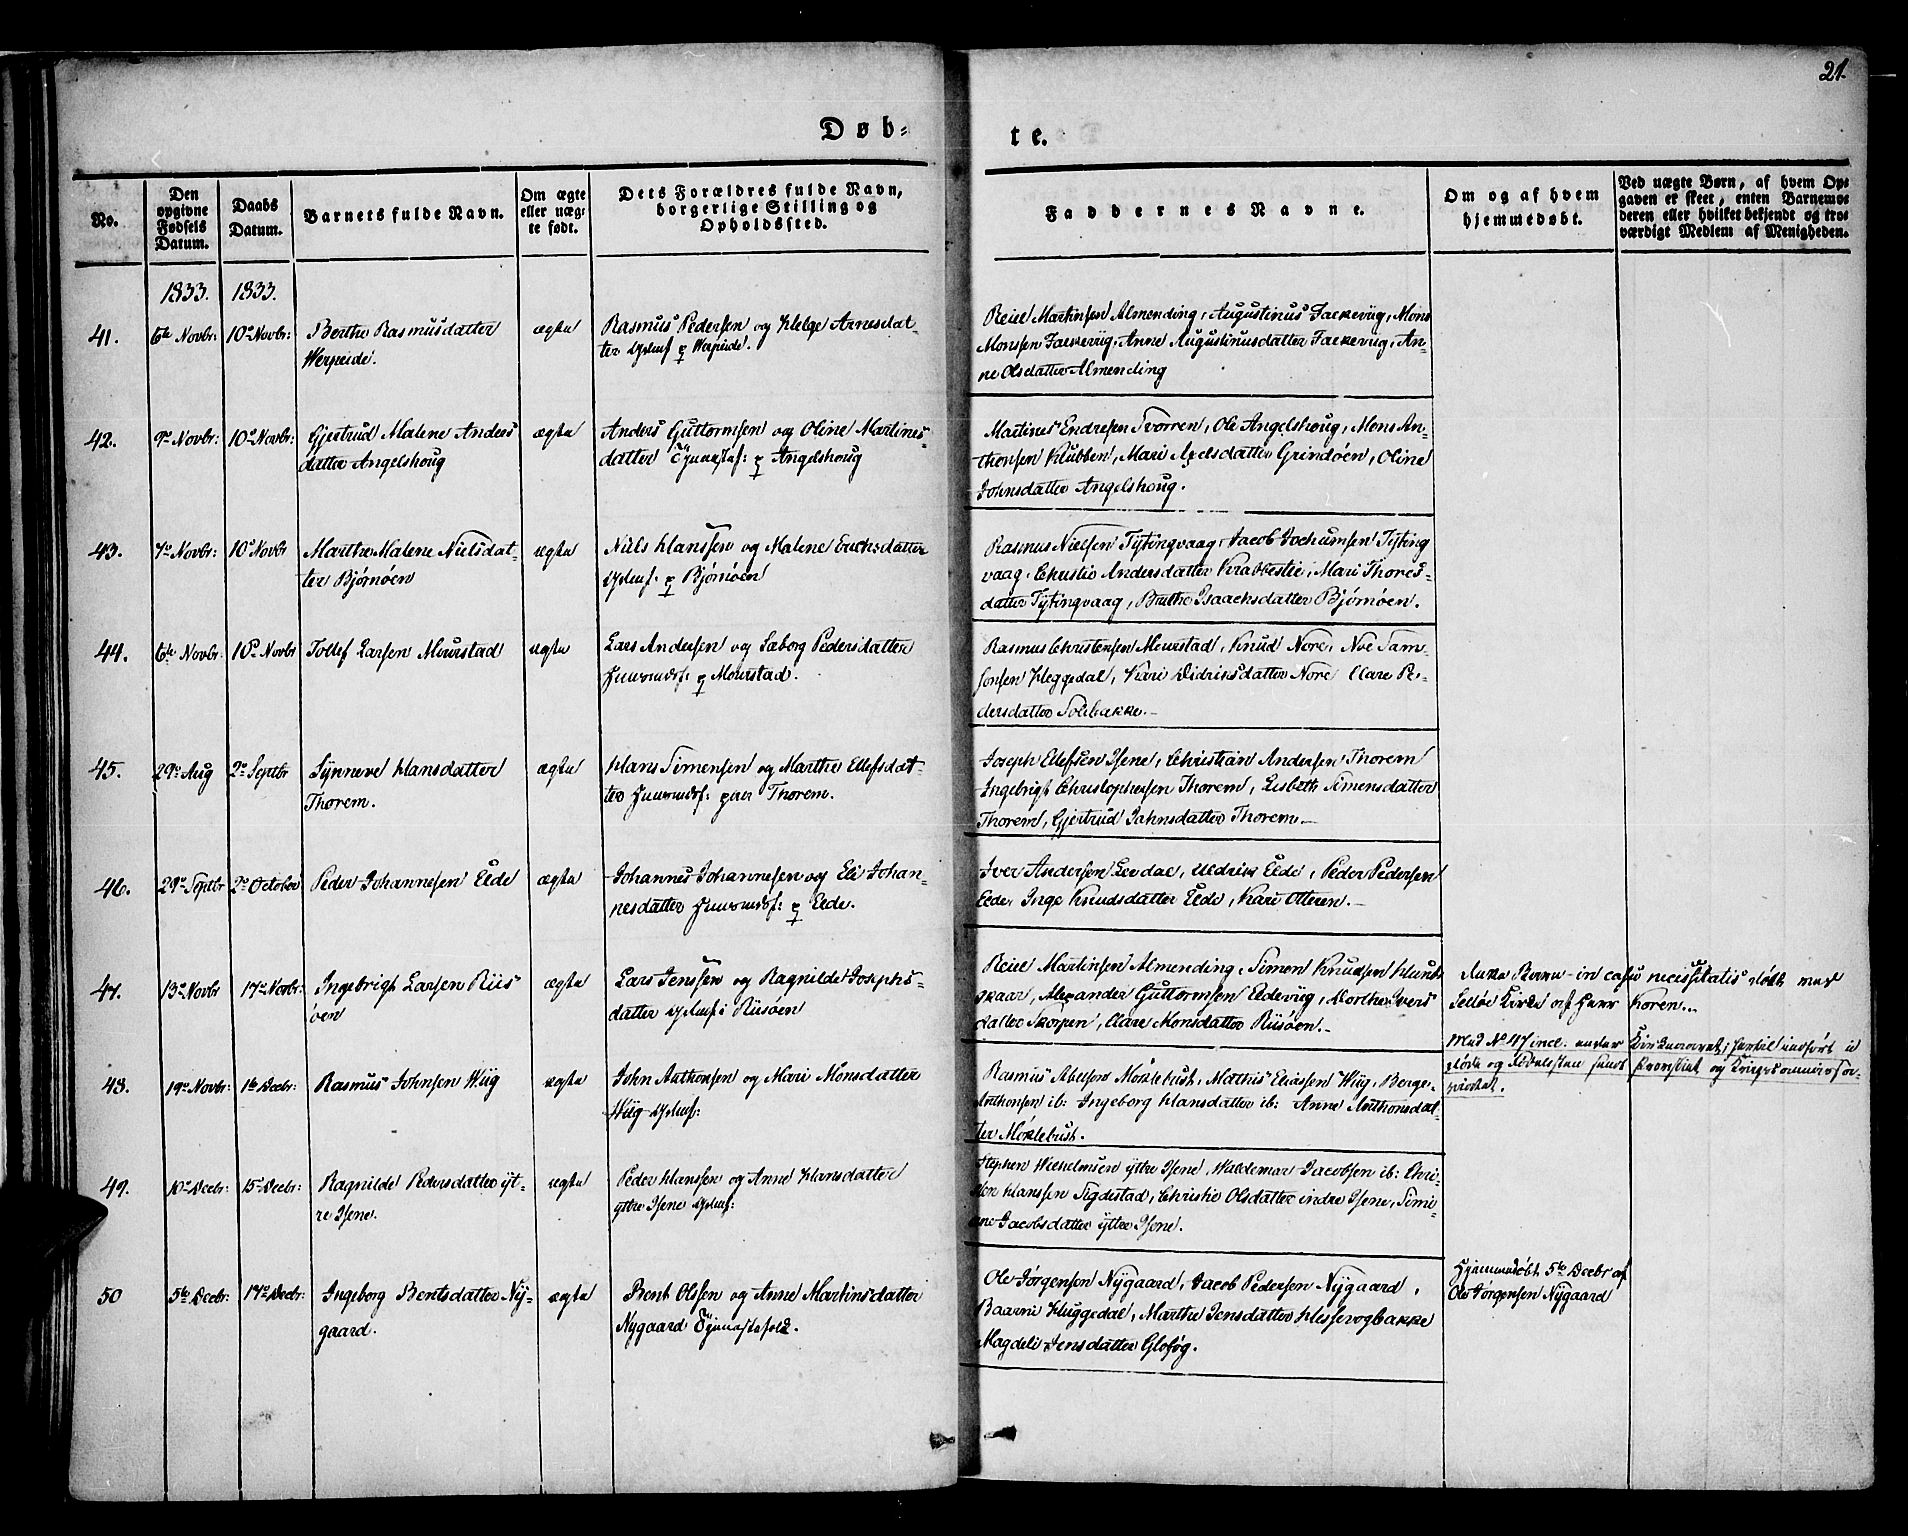 21.
Døb-
te.
No.
Den opgivne Fødsels Datum.
Daabs Datum.
Barnets fulde Navn.
Om ægte eller uæg- te født.
Dets Forældres fulde Navn, borgerlige Stilling og Opholdssted.
Faddernes Navne.
Om og af hvem hjemmedøbt.
Ved uægte Børn, af hvem Op- gaven er skeet, enten Barnemo- deren eller hvilket bekjendt og tro- værdigt Medlem af Menigheden.
1833. 1833.
41. 6te Novbr: 10de Novbr: Berthe Rasmusdatter ægte Rasmus Pedersen og Helge Arnesdat-
Werpeide. ter Werpeide.
Reiel Martinsen Almending, Augustinus Faekevug, Mons
Monssen Faekevug, Anne Augustinusdatter Faekevug, An-
ne Olsdatter Almending
42. 9de Novbr: 10de Novbr: Gjertrud Malene Anders ægte Anders Guttormsen og Oline Martines-
datter Angelshoug datter Angelshoug
Martinus Endresen Svorren, Ole Angelshoug, Mons An-
thonsen Klubben, Mari Axelsdatter Grindøen, Oline
Johnsdatter Angelshoug.
43. 7de Novbr: 10de Novbr Marthe Malene Nielsdat- ægte Niels Hanssen og Malene Erichsdatter
ter Bjørnøen Bjørnøen
Rasmus Nielsen Tytingvaag, Jacob Jochumsen Tyting
vaag, Christie Andersdatter Krabbestie, Mari Thores-
datter Tytingvaag, Brithe Isaachsdatter Bjørnøen.
44. 6te Novbr: 10de Novbr Tollef Larsen Meurstad ægte Lars Andersen og Sæborg Pedersdatter
Meurstad.
Rasmus Christensen Meurstad, Knud Nore, Noe Sam-
sonsen Heggedal, Kari Didriksdatter Nore Clare Pe-
dersdatter Solibakke.
45. 29de Aug 2de Septbr Synneve Hansdatter ægte Hans Simensen og Marthe Ellefsdat-
Thorem. ter Thorem.
Joseph Ellefsen Isene, Christian Andersen Thorem
Ingebrigt Christophersen Thorem, Lisbeth Simensdatter
Thorem, Gjertrud Jahnsdatter Thorem.
46. 29de Septbr 2de October Peder Johannesen Eide ægte Johannes Johannesen og Eli Johan-
nesdatter Eide.
Iver Andersen Levdal, Uldrik Eide, Peder Pedersen
Eide, Inge Knudsdatter Eide, Kari Otteren.
47. 13de Novbr 17de Novbr: Ingebrigt Larsen Riis ægte Lars Jenssen og Ragnilde Josephs-
øen datter Riisøen
Reiel Martinsen Almending, Simon Knudsen
skaar, Alexander Guttormsen Eldevug, Dorthe Ivers
datter Skorpen, Clare Monsdatter Riisøen.
in casu necessitatis døbt ved
Selløe Kirke af Herr Koren.
Med No 47 incl.
48. 19de Novbr: 1te Decbr: Rasmus Johnsen Wiig ægte John Anthonsen og Mari Monsdatter
Wiig
Rasmus Abelsen Moklebust, Mathis Eliassen Wiig, Berge,
Anthonsen ib: Ingeborg Hansdatter ib: Anne Anthonsdat-
ter Moklebust.
49. 10de Decbr: 15de Decbr: Ragnilde Pedersdatter yt- ægte Peder Hanssen og Anne Hansdatter
re Isene. yttre Isene
Stephen Wilhelmsen yttre Isene, Waldemar Jacobsen ib: Chri-
sten Hanssen Sigdestad, Christie Olsdatter indre Isene, Simi-
ne Jacobsdatter yttre Isene.
50 5te Decbr: 17de Decbr: Ingeborg Bentsdatter Ny- ægte Bent Olssen og Anne Martinsdatter
gaard. Nygaard
Ole Jørgensen Nygaard, Jacob Pedersen Nygaard,
Baarni Huggedal, Marthe Jensdatter Hessevogbakke
Magdeli Jensdatter Glosøg.
Hjemmedøbt 5te Decbr af
Ole Jørgensen Nygaard